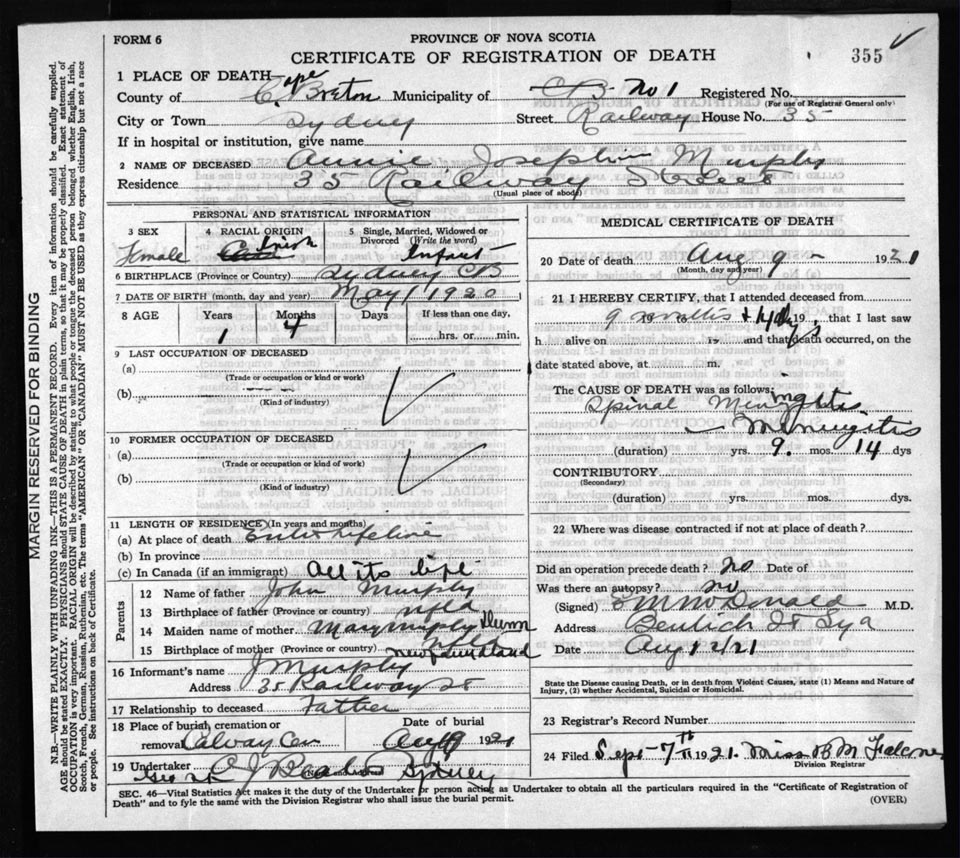 FORM 6
PROVINCE OF NOVA SCOTIA
CERTIFICATE OF REGISTRATION OF DEATH
355
1 PLACE OF DEATH
County of Cape Breton Municipality of CB No 1 Registered No.
(For use of Registrar General only)
City or Town Sydney Street Railway House No. 35
If in hospital or institution, give name
2 NAME OF DECEASED Annie Josephine Murphy
Residence 35 Railway Street
(Usual place of abode)
PERSONAL AND STATISTICAL INFORMATION
3 SEX 4 RACIAL ORIGIN 5 Single, Married, Widowed or Divorced (Write the word)
Female Irish Infant
6 BIRTHPLACE (Province or Country) Sydney CB
7 DATE OF BIRTH (month, day and year) May 1 1920
8 AGE Years Months Days If less than one day,
1 4 hrs. or min.
9 LAST OCCUPATION OF DECEASED
(a)
(Trade or occupation or kind or work)
(b)
(Kind of industry)
10 FORMER OCCUPATION OF DECEASED
(a)
(Trade or occupation or kind or work)
(b)
(Kind of industry)
11 LENGTH OF RESIDENCE (In years and months)
(a) At place of death Entire lifetime
(b) In province
(c) In Canada (if an immigrant) All its life
Parents
12 Name of father John Murphy
13 Birthplace of father (Province or country) Nfld
14 Maiden name of mother Mary Murphy Dunn
15 Birthplace of mother (Province or country) Newfoundland
16 Informant's name J Murphy
Address 35 Railway St
17 Relationship to deceased Father
18 Place of burial, cremation or removal Calvary Cem Date of burial Aug 9 1921
19 Undertaker C J Beaton Sydney
Name and Address
MEDICAL CERTIFICATE OF DEATH
20 Date of death Aug 9 1921
(Month, day and year)
21 I HEREBY CERTIFY, that I attended deceased from
9 months + 14 dys 19 , that I last saw
h alive on 19 and that death occurred, on the
date stated above, at m.
The CAUSE OF DEATH was as follows:
Spinal Meningitis
Meningitis
(duration) yrs. 9. mos. 14 dys
CONTRIBUTORY
(Secondary)
(duration) yrs. mos. dys.
22 Where was disease contracted if not at place of death?
Did an operation precede death? no Date of
Was there an autopsy? no
(Signed) E M McDonald M.D.
Address Bentick St Syd
Date Aug 12/21
State the Disease causing Death, or in death from Violent Causes, state (1) Means and Nature of
Injury, (2) whether Accidental, Suicidal or Homicidal.
23 Registrar's Record Number
24 Filed Sept 7th 1921. Miss B M Falconer
Division Registrar
SEC. 46—Vital Statistics Act makes it the duty of the Undertaker or person acting as Undertaker to obtain all the particulars required in the "Certificate of Registration of
Death" and to fyle the same with the Division Registrar who shall issue the burial permit.
(OVER)
MARGIN RESERVED FOR BINDING
N.B.—WRITE PLAINLY WITH UNFADING INK—THIS IS A PERMANENT RECORD. Every item of information should be carefully supplied.
AGE should be stated EXACTLY. PHYSICIANS should STATE CAUSE OF DEATH in plain terms, so that it may be properly classified. Exact statement of
OCCUPATION is very important. RACIAL ORIGIN will be described by stating to what people or tongue the deceased person belonged whether English, Irish,
Scotch, French, German, Russian, Ruthenian, etc. The terms "AMERICAN" OR "CANADIAN" MUST NOT BE USED as they express citizenship but not a race
or people. See instructions on back of Certificate.